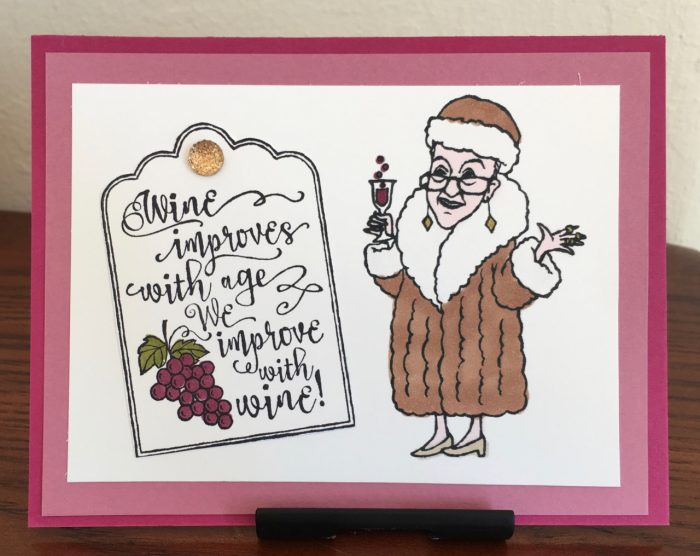 Wine
improves
with age
We
improve
with
wine!